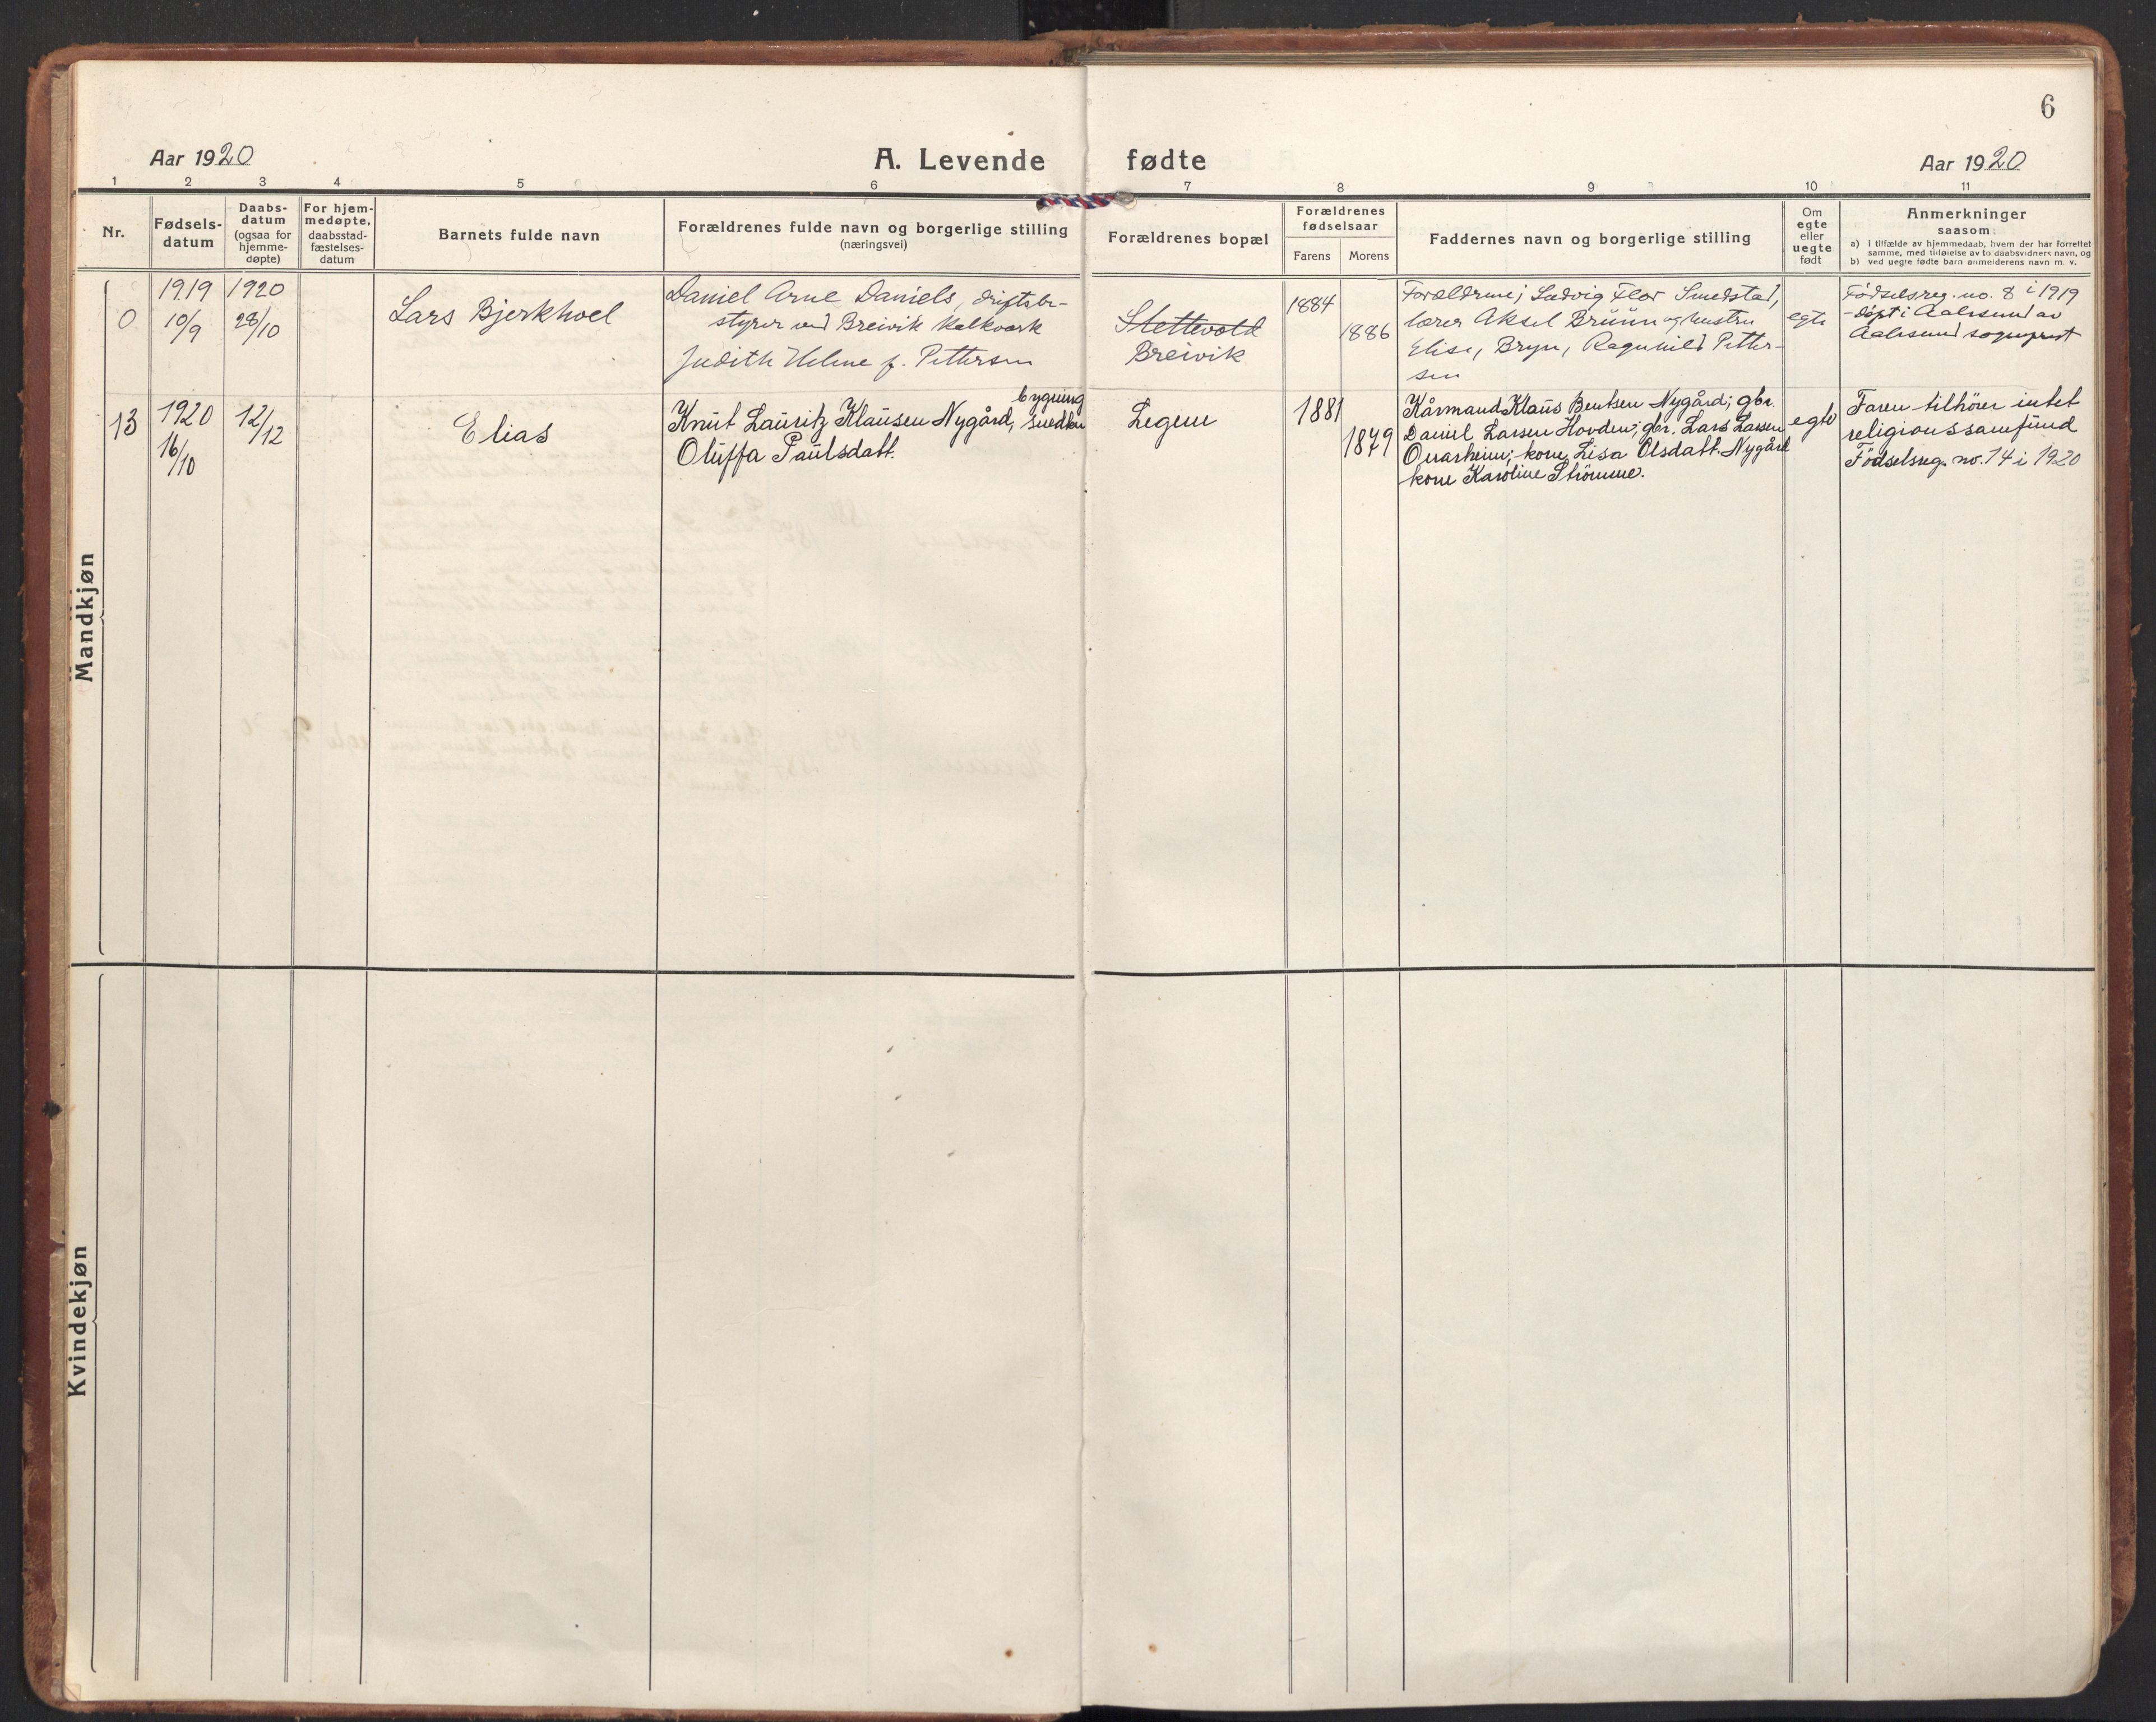 6
Aar 1920
A. Levende fødte
Aar 1920
1 2 3 4 5 6 7 8 9 10 11
Nr.
Fødsels-
datum
Daabs-
datum
(ogsaa for
hjemme-
døpte)
For hjem-
medøpte,
daabsstad-
fæstelses-
datum
Barnets fulde navn
Forældrenes fulde navn og borgerlige stilling
(næringsvei)
Forældrenes bopæl
Forældrenes
fødselsaar
Farens
Morens
Faddernes navn og borgerlige stilling
Om
egte
eller
uegte
født
Anmerkninger
saasom:
a) i tilfælde av hjemmedaab, hvem der har forrettet
samme, med tilføielse av to daabsvidners navn, og
b) ved uegte fødte barn anmelderens navn m. v.
Mandkjøn
0
1919
10/9
1920
28/10
Lars Bjerkhoel
Daniel Arne Daniels, driftsbe-
styrer ved Breivik kalkverk
Judith Helene f. Pettersen
Slettevold
Breivik
1884
1886
Forældrene; Ludvig Flor Smedstad,
lærer Aksel Bruun og hustru
Elise, Bryn, Ragnhild Petter-
sen
egte
Fødselsreg. no. 8 i 1919
- døpt i Aalesund av
Aalesund sogneprest
13
1920
16/10
12/12
Elias
bygning
Knut Lauritz Klausen Nygård, snedker
Oluffa Paulsdatt.
Legene
1881
1879
Kårmand Klaus Bentsen Nygård; gbr.
Daniel Larsen Hovden; gbr. Lars Larsen
Ovarheim; kone Lisa Olsdatt. Nygård
kone Karoline Strömme.
egte
Faren tilhörer intet
religionssamfund
Födselsreg. no. 14 i 1920
Kvindekjøn